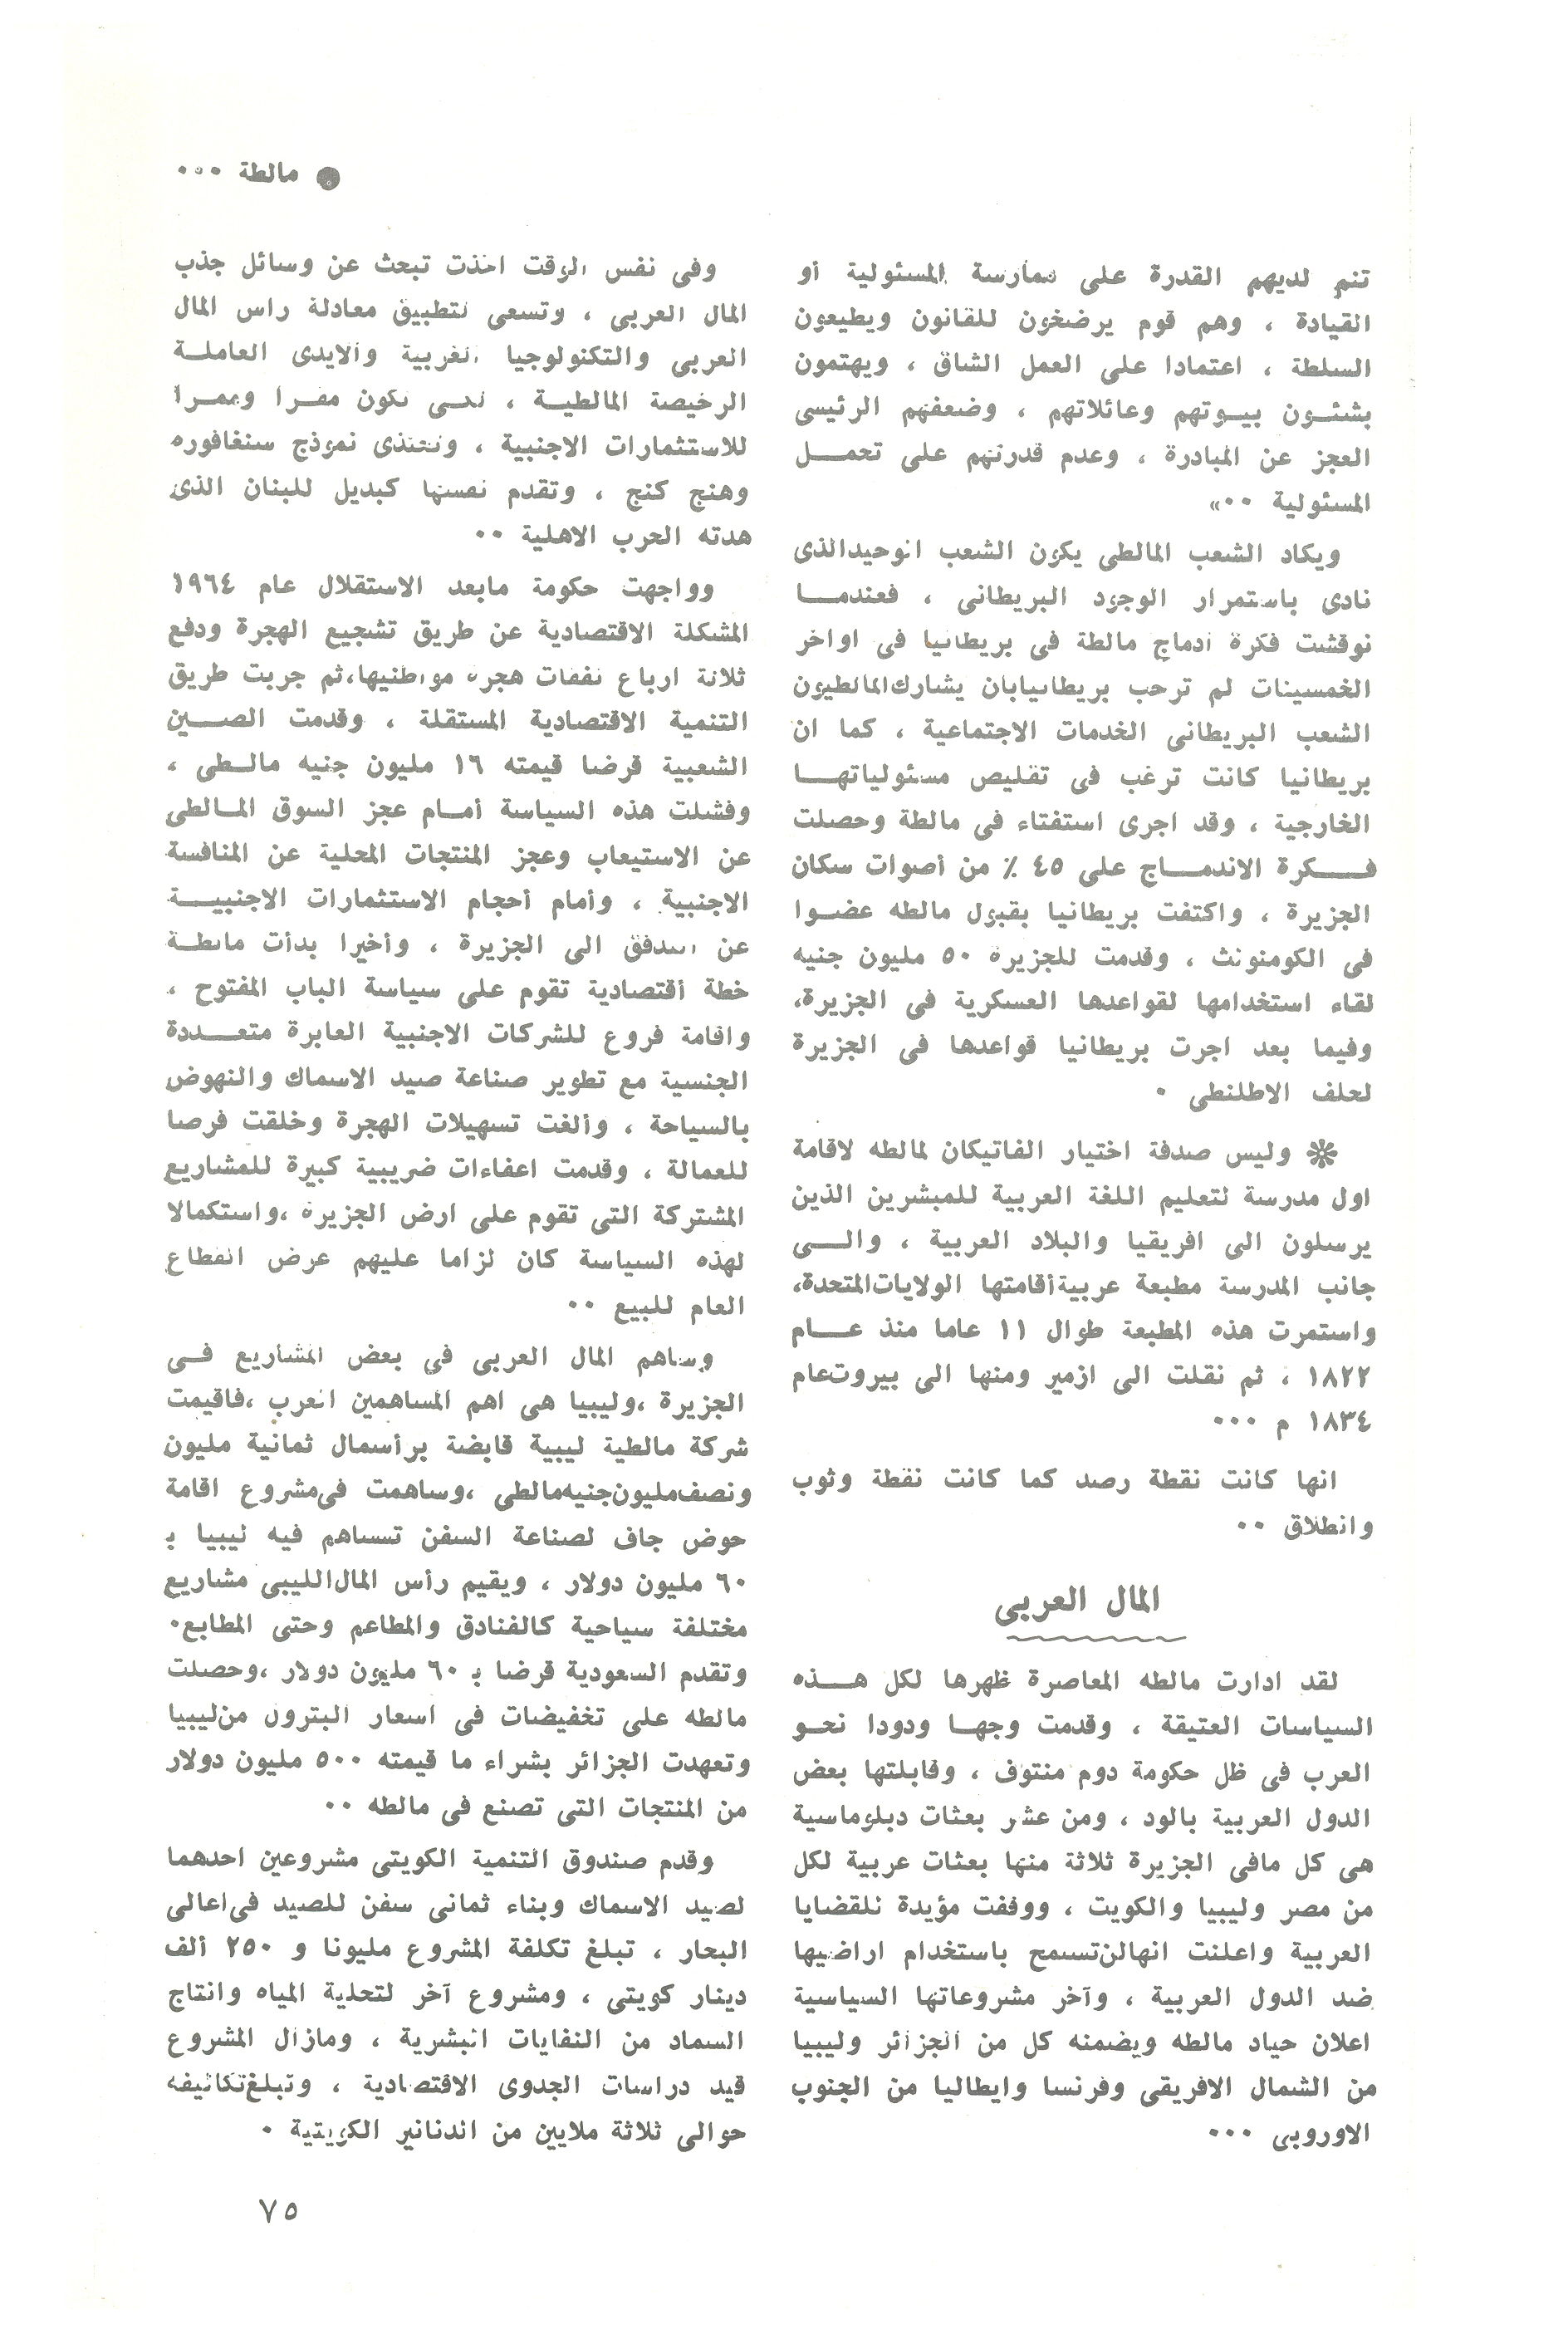 ● مالطة ٠٠٠
تنم لديهم القدرة على ممارسة المسئولية أو
القيادة ، وهم قوم يرضخون للقانون ويطيعون
السلطة ، اعتمادا على العمل الشاق ، ويهتمون
بشئــون بيــوتهم وعائلاتهم ، وضعفهم الرئيسى
العجز عن المبادرة ، وعدم قدرتهم على تحمــل
المسئولية ٠٠»
ويكاد الشعب المالطى يكون الشعب الوحيدالذى
نادى باستمرار الوجود البريطانى ، فعندمــا
نوقشت فكرة ادماج مالطة فى بريطانيا فى اواخر
الخمسينات لم ترحب بريطانيابان يشارك المالطيون
الشعب البريطانى الخدمات الاجتماعية ، كما ان
بريطانيا كانت ترغب فى تقليص مسئولياتهــا
الخارجية ، وقد اجرى استفتاء فى مالطة وحصلت
فــكرة الاندمــاج على ٤٥ ٪ من أصوات سكان
الجزيرة ، واكتفت بريطانيا بقبول مالطه عضــوا
فى الكومنونث ، وقدمت للجزيرة ٥٠ مليون جنيه
لقاء استخدامها لقواعدها العسكرية فى الجزيرة،
وفيما بعد اجرت بريطانيا قواعدها فى الجزيرة
لحلف الاطلنطى ٠
❊ وليس صدفة اختيار الفاتيكان لمالطه لاقامة
اول مدرسة لتعليم اللغة العربية للمبشرين الذين
يرسلون الى افريقيا والبلاد العربية ، والــى
جانب المدرسة مطبعة عربية أقامتها الولايات المتحدة،
واستمرت هذه المطبعة طوال ١١ عاما منذ عــام
١٨٢٢ ، ثم نقلت الى ازمير ومنها الى بيروت عام
١٨٣٤ م ٠٠٠
انها كانت نقطة رصد كما كانت نقطة وثوب
وانطلاق ٠٠
المال العربى
لقد ادارت مالطه المعاصرة ظهرها لكل هــذه
السياسات العتيقة ، وقدمت وجهــا ودودا نحــو
العرب فى ظل حكومة دوم منتوف ، وقابلتها بعض
الدول العربية بالود ، ومن عشر بعثات دبلوماسية
هى كل مافى الجزيرة ثلاثة منها بعثات عربية لكل
من مصر وليبيا والكويت ، ووقفت مؤيدة للقضايا
العربية واعلنت انهالن تسمح باستخدام اراضيها
ضد الدول العربية ، وآخر مشروعاتها السياسية
اعلان حياد مالطه ويضمنه كل من الجزائر وليبيا
من الشمال الافريقى وفرنسا وايطاليا من الجنوب
الاوروبى ٠٠٠
وفى نفس الوقت اخذت تبحث عن وسائل جذب
المال العربى ، وتسعى لتطبيق معادلة راس المال
العربى والتكنولوجيا الغربية والايدى العاملــة
الرخيصة المالطيــة ، لكــى تكون مقــرا وممــرا
للاستثمارات الاجنبية ، وتحتذى نموذج سنغافوره
وهنج كنج ، وتقدم نفسها كبديل للبنان الذى
هدته الحرب الاهلية ٠٠
وواجهت حكومة مابعد الاستقلال عام ١٩٦٤
المشكلة الاقتصادية عن طريق تشجيع الهجرة ودفع
ثلاثة ارباع نفقات هجرة مواطنيها،ثم جربت طريق
التنمية الاقتصادية المستقلة ، وقدمت الصــين
الشعبية قرضا قيمته ١٦ مليون جنيه مالــطى ،
وفشلت هذه السياسة أمــام عجز السوق المــالطى
عن الاستيعاب وعجز المنتجات المحلية عن المنافسة
الاجنبية ، وأمام أحجام الاستثمارات الاجنبيــة
عن التدفق الى الجزيرة ، وأخيرا بدأت مالطــة
خطة أقتصادية تقوم على سياسة الباب المفتوح ،
واقامة فروع للشركات الاجنبية العابرة متعــددة
الجنسية مع تطوير صناعة صيد الاسماك والنهوض
بالسياحة ، وألغت تسهيلات الهجرة وخلقت فرصا
للعمالة ، وقدمت اعفاءات ضريبية كبيرة للمشاريع
المشتركة التى تقوم على ارض الجزيرة ،واستكمالا
لهذه السياسة كان لزاما عليهم عرض القطاع
العام للبيع ٠٠
وساهم المال العربى في بعض المشاريع فــى
الجزيرة ،وليبيا هى اهم المساهمين العرب ،فاقيمت
شركة مالطية ليبية قابضة برأسمال ثمانية مليون
ونصف مليون جنيه مالطى ،وساهمت فى مشروع اقامة
حوض جاف لصناعة السفن تسساهم فيه ليبيا بـ
٦٠ مليون دولار ، ويقيم رأس المال الليبى مشاريع
مختلفة سياحية كالفنادق والمطاعم وحتى المطابع٠
وتقدم السعودية قرضا بـ ٦٠ مليون دولار ،وحصلت
مالطه على تخفيضات فى اسعار البترول من ليبيا
وتعهدت الجزائر بشراء ما قيمته ٥٠٠ مليون دولار
من المنتجات التى تصنع فى مالطه ٠٠
وقدم صندوق التنمية الكويتى مشروعين احدهما
لصيد الاسماك وبناء ثمانى سفن للصيد فى اعالى
البحار ، تبلغ تكلفة المشروع مليونا و ٢٥٠ ألف
دينار كويتى ، ومشروع آخر لتحلية المياه وانتاج
السماد من النفايات البشرية ، ومازال المشروع
قيد دراسات الجدوى الاقتصادية ، وتبلغ تكاليفه
حوالى ثلاثة ملايين من الدنانير الكويتية ٠
٧٥